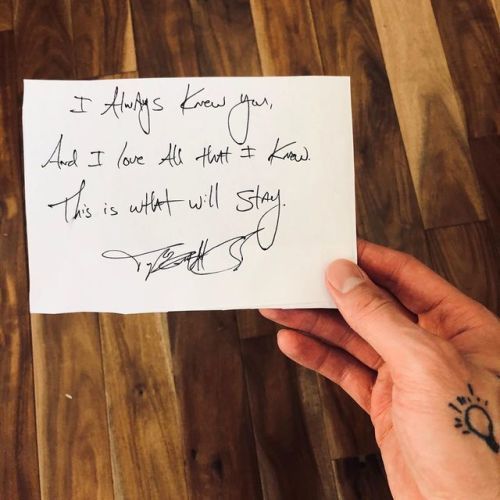 I Always Knew You,
And I love All thAt I Know.
This is whAt will StAy.